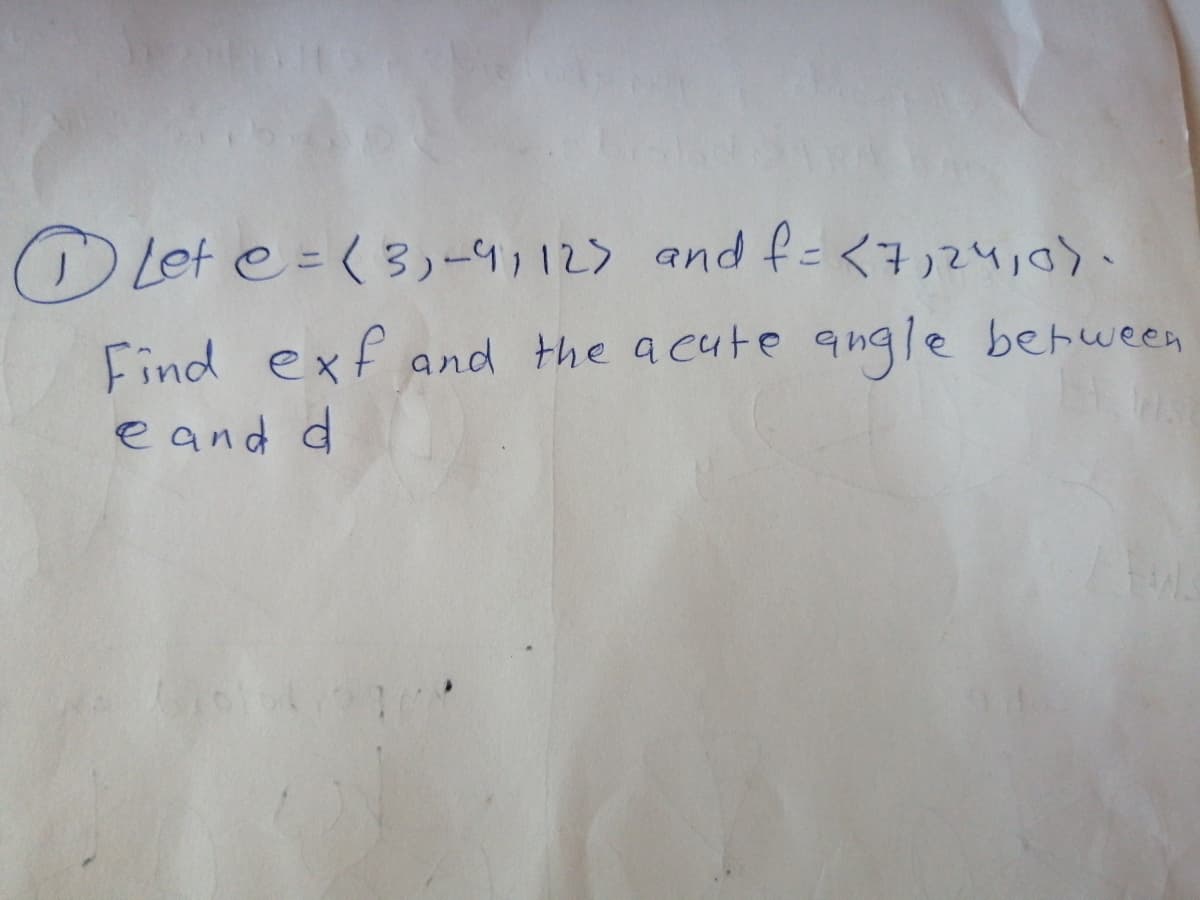 ① Let e = <3, -4, 12> and f = <7, 24, 0>.
Find exf and the acute angle between
e and d